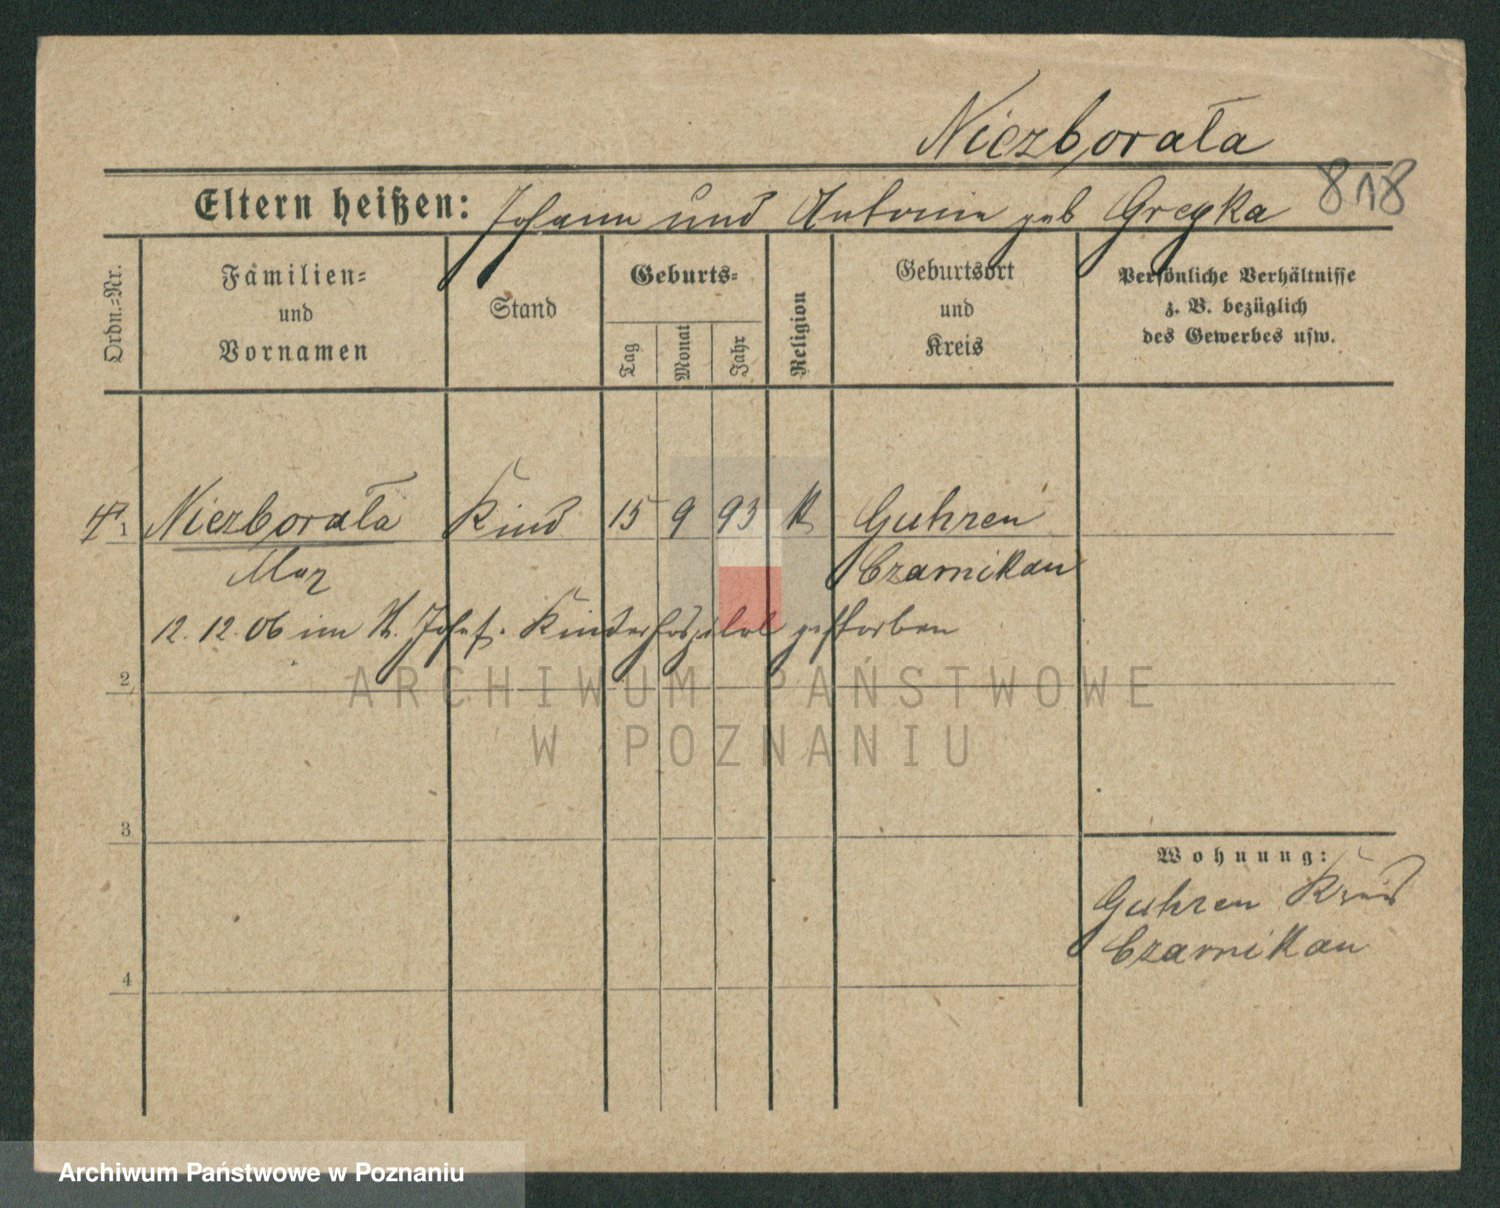 Niezborała
818
Eltern heißen: Johann und Antonie geb
Ordn.=Nr.
Familien=
und
Vornamen
Stand
Geburts=
Tag
Monat
Jahr
Religion
Geburtsort
und
Kreis
Persönliche Verhältnisse
z. B. bezüglich
des Gewerbes usw.
1 Niezborała Kind 15 9 93 K Guhren
Czarnikau
12. 12. 06 im St. Josef. Kinderhospital gestorben
2
3
4
Wohnung:
Guhren Kreis
Czarnikau
ARCHIWUM PAŃSTWOWE
W POZNANIU
Archiwum Państwowe w Poznaniu